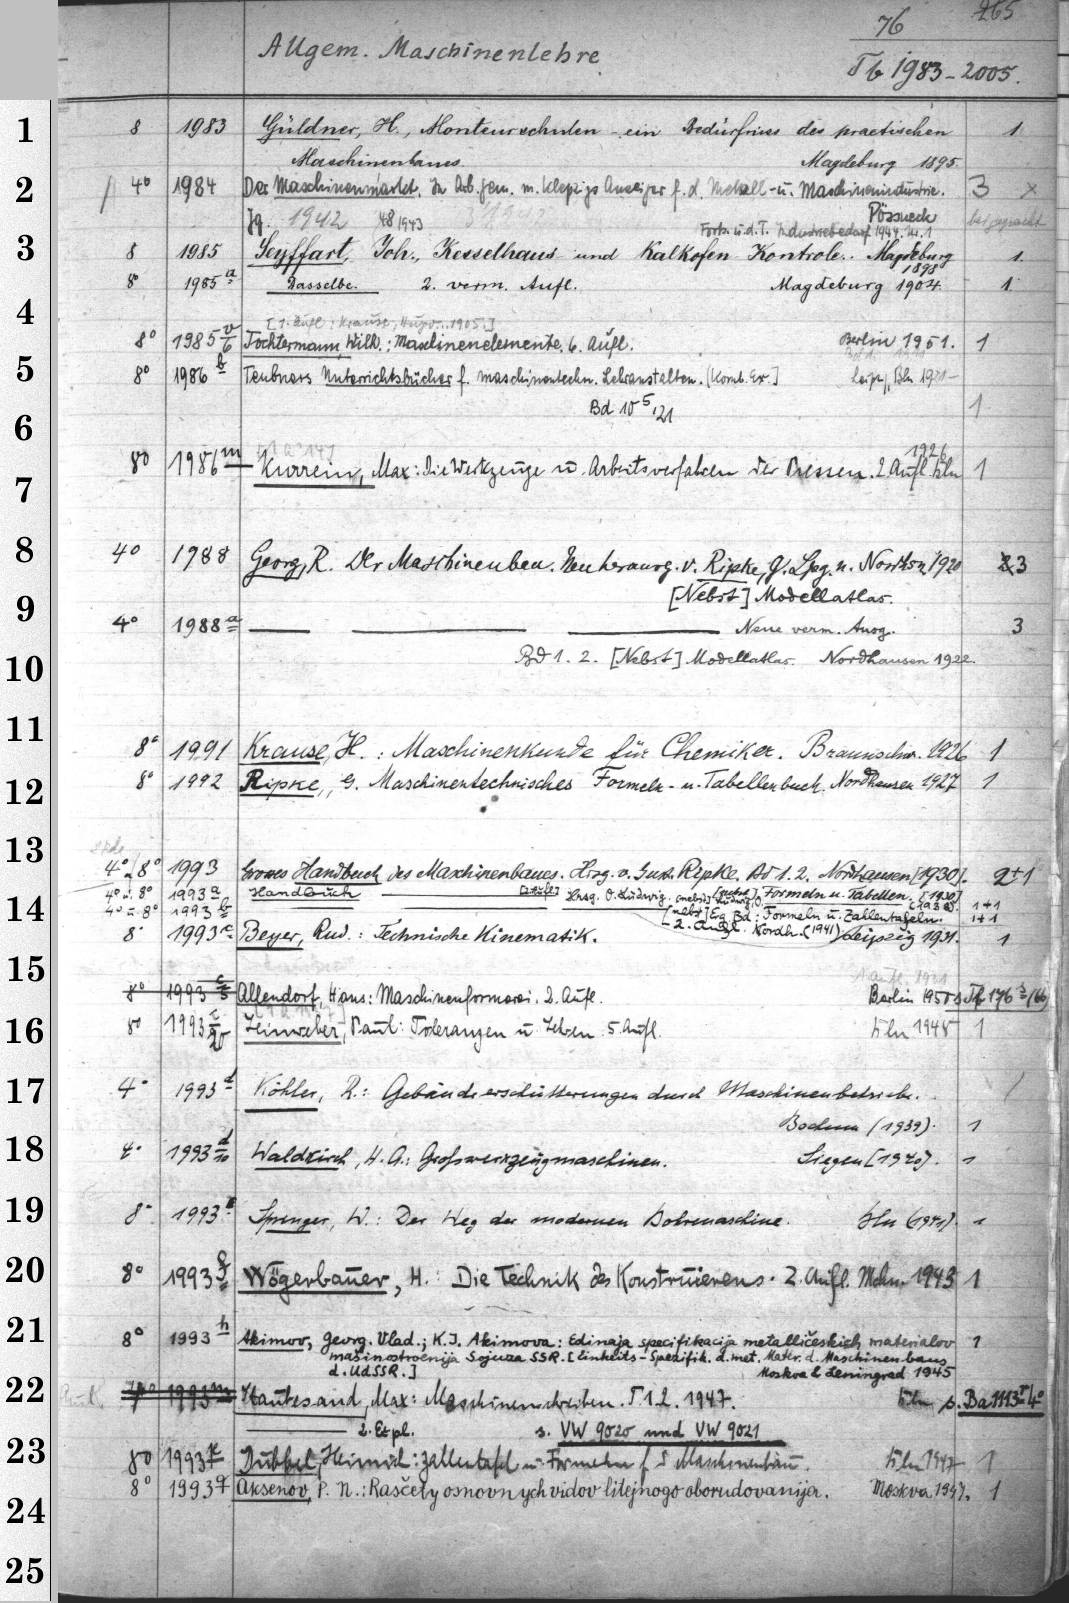 76 265
Allgem. Maschinenlehre Tb 1983-2005.
1 8 1983 Güldner, H., Monteurschulen - ein Bedürfniss des practischen 1
Maschinenbaues Magdeburg 1895.
2 4° 1984 Der Maschinenmarkt. In Arb. gem. m. Klepzigs Anzeiger f. d. Metall- u. Maschinenindustrie. 3 x
Jg. 1942 48 1943 Pössneck
Forts. u. d. T. Industriebedarf 1944. Nr. 1
3 8 1985 Seyffart, Joh., Kesselhaus und Kalkofen Kontrole. Magdeburg 1898 1.
8° 1985 a Dasselbe. 2. verm. Aufl. Magdeburg 1904. 1
4
[1. Aufl.: Krause, Hugo... 1905.]
8° 1985 v/6 Tochtermann, Wilh.: Maschinenelemente. 6. Aufl. Berlin 1951. 1
5 8° 1986 b Teubners Unterrichtsbücher f. maschinentechn. Lehranstalten. (Komb. Ex.] Leipz., Bln 1921-
Bd 10 5,21 1
6
8° 1986 m Kurrein, Max: Die Werkzeuge u. Arbeitsverfahren der Pressen. 2. Aufl. Bln 1926 1
7
8 4° 1988 Georg, R. Der Maschinenbau. Neu herausg. v. Ripke, G. Lpg. u. Nordhsn 1920 3
9 [Nebst] Modellatlas.
4° 1988 a Neue verm. Ausg. 3
10 Bd 1. 2. [Nebst] Modellatlas. Nordhausen 1922.
11 8° 1991 Krause, H.: Maschinenkunde für Chemiker. Braunschw. 1926 1
12 8° 1992 Ripke, G. Maschinentechnisches Formeln- u. Tabellenbuch. Nordhausen 1927 1
13
4° u. 8° 1993 Grosses Handbuch des Maschinenbaues. Hrsg. v. Gust. Ripke. Bd 1. 2. Nordhausen [1930]. 2+1
4° u. 8° 1993 a Handbuch [2. Aufl.] Hrsg. O. Ludwig. [nebst] Formeln u. Tabellen. [1930] 1+1
14 4° u. 8° 1993 b [nebst] Erg. Bd: Formeln u. Zahlentafeln. 1+1
- 2. Aufl. Nordh. (1941)
8° 1993 c Beyer, Rud.: Technische Kinematik. Leipzig 1931. 1
15
8° 1993 c/5 Allendorf, Hans: Maschinenformerei. 2. Aufl. Berlin 1950 s. Tb 176
16 8° 1993 Leinweber, Paul: Toleranzen u. Lehren. 5. Aufl. Bln 1948 1
17 4° 1993 d Köhler, R.: Gebäudeerschütterungen durch Maschinenbetriebe.
Bochum (1939). 1
18 4° 1993 d/10 Waldkirch, H. A.: Grosswerkzeugmaschinen. Siegen [1940]. 1
19 8° 1993 e Sprenger, W.: Der Weg der modernen Bohrmaschine. Bln (1941). 1
20 8° 1993 g Wögerbauer, H.: Die Technik des Konstruierens. 2. Aufl. Mchn. 1943 1
21 8° 1993 h Akimov, Georg. Vlad.; K. I. Akimova: Edinaja specifikacija metalličeskich materialov 1
mašinostroenija Sojuza SSR. [Einheits-Spezifik. d. met. Mater. d. Maschinenbaus
d. UdSSR.] Moskva & Leningrad 1945
22 1993 m Hautesand, Max: Maschinenschreiben. T 1. 2. 1947. Bln s. Ba 1113 r/4°
2. Expl. s. VW 9020 und VW 9021
23 8° 1993 x Dubbel, Heinrich: Zahlentafel u. Formeln f. d. Maschinenbau. Bln 1947 1
8° 1993 q Aksenov, P. N.: Rasčety osnovnych vidov litejnogo oborudovanija. Moskva 1947. 1
24
25